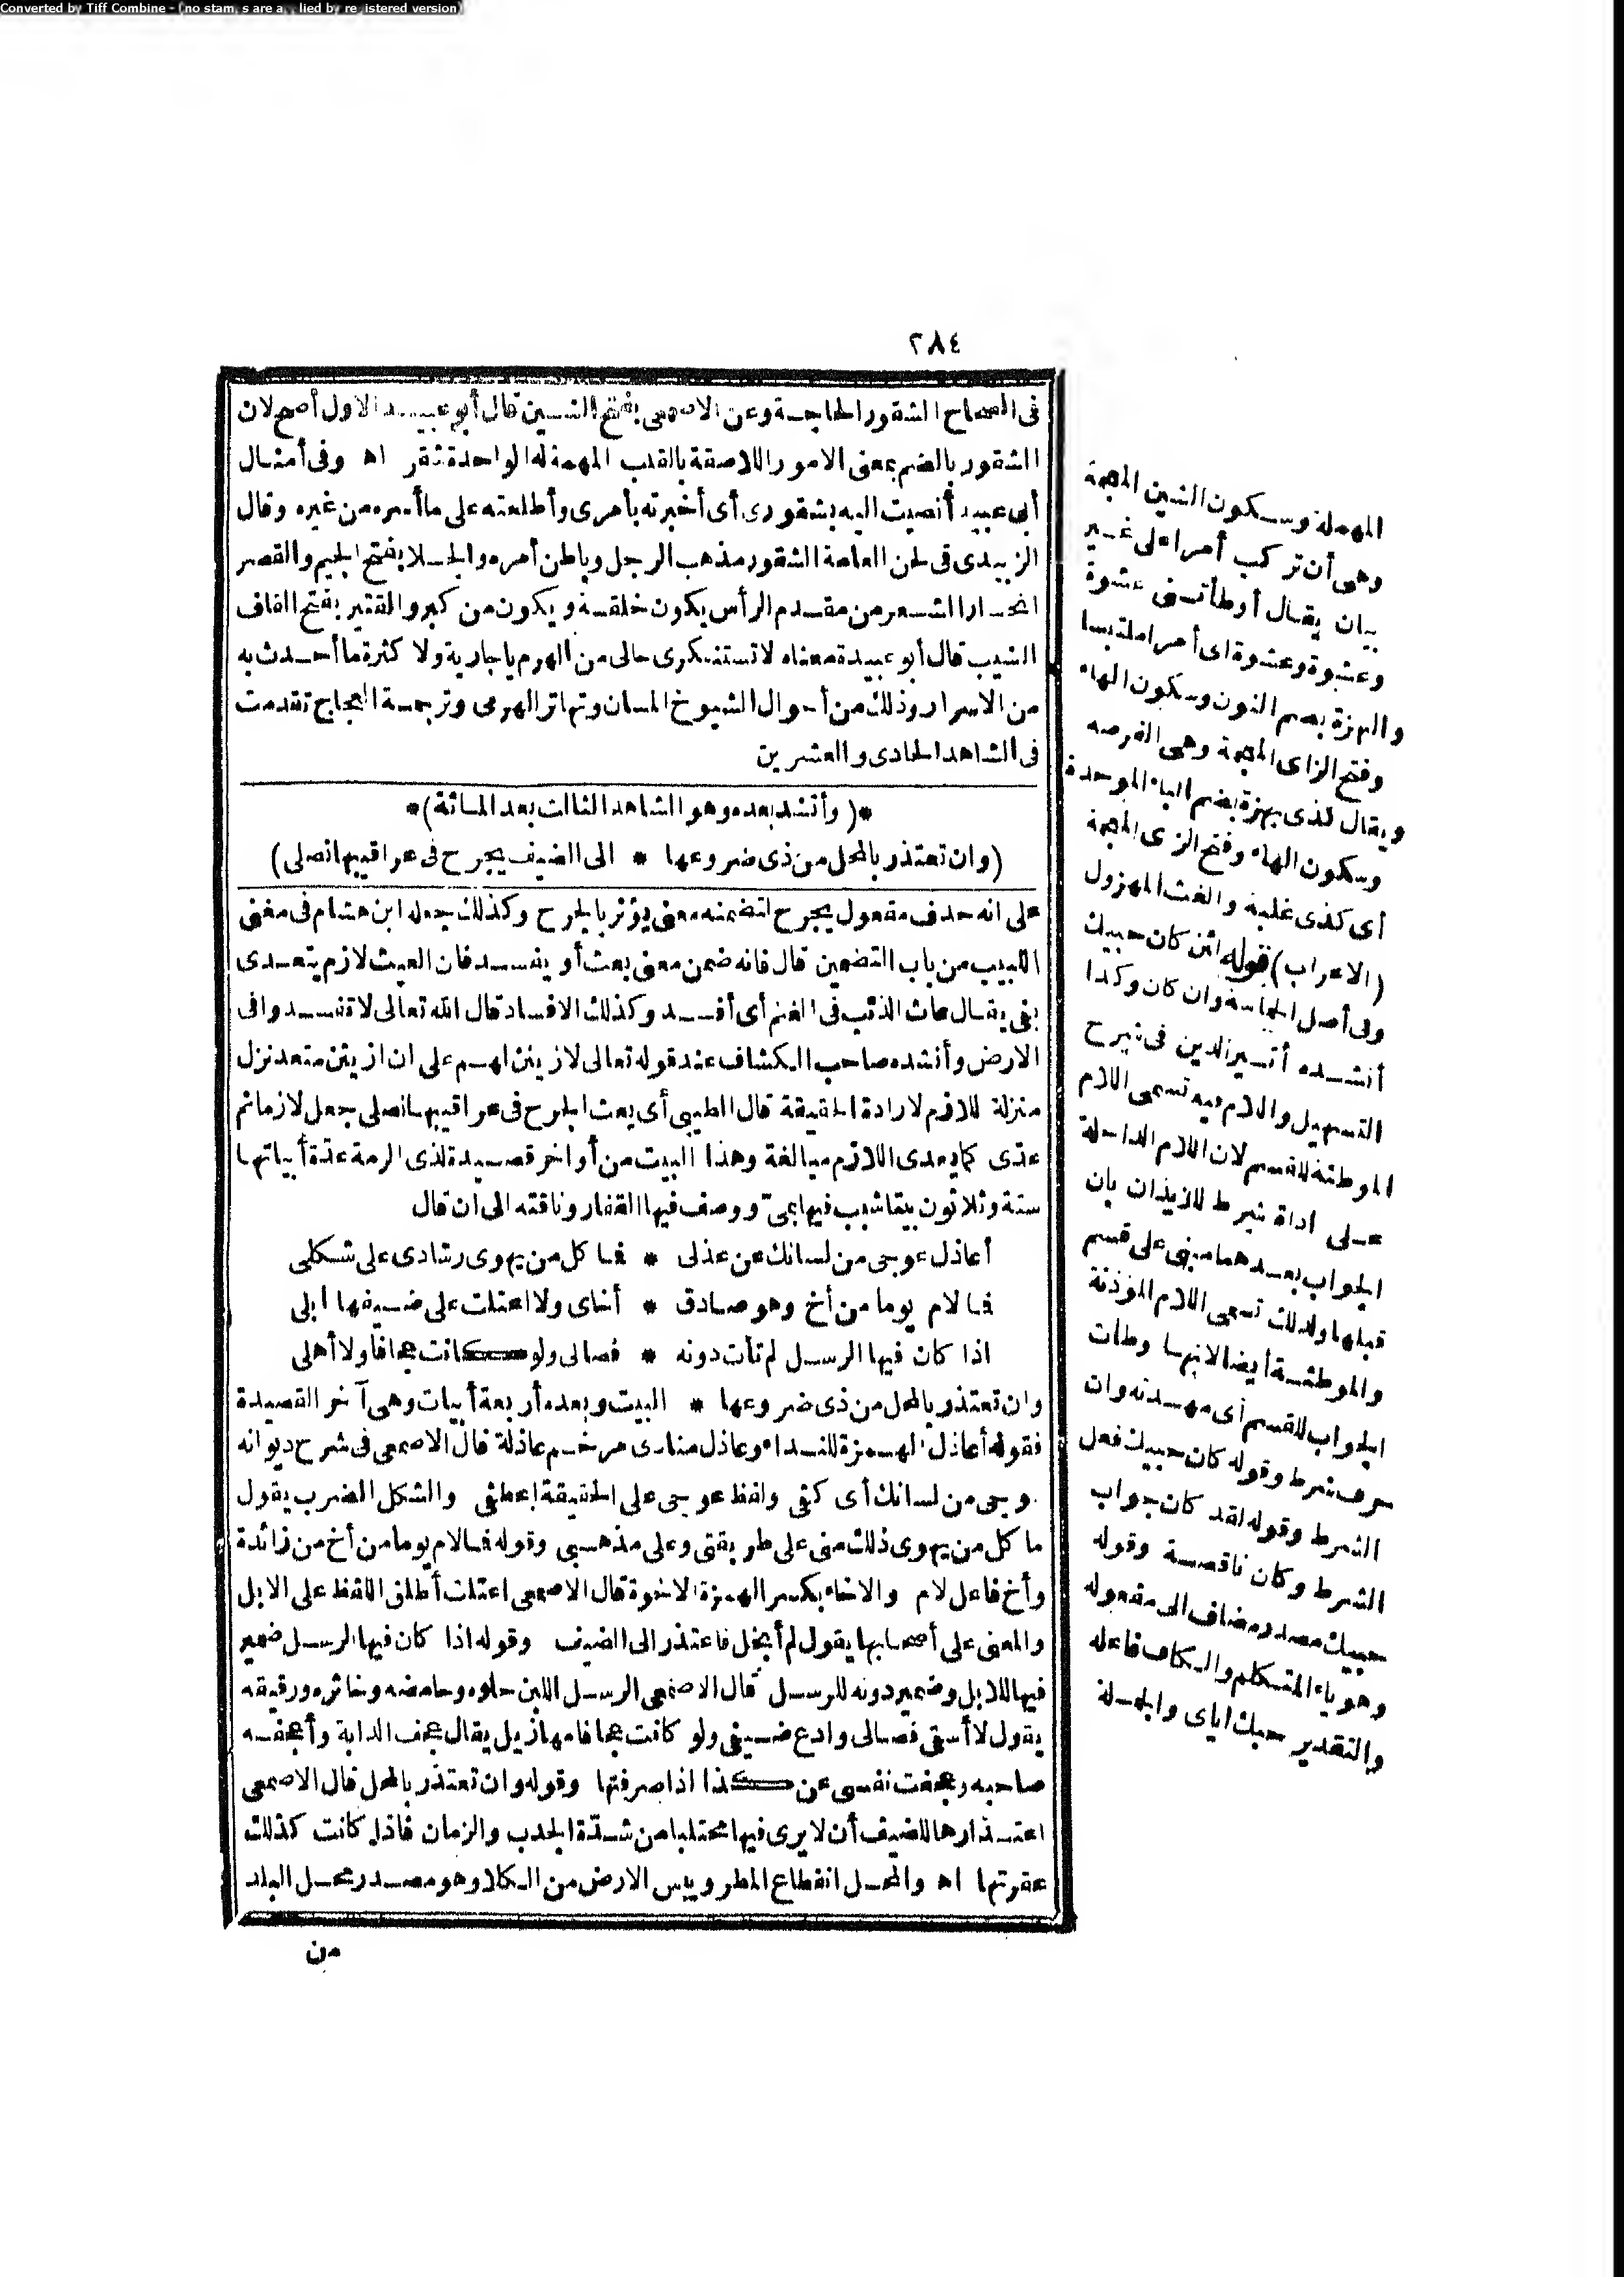 Converted by Tiff Combine - (no stamps are applied by registered version)
٢٨٤
فى الصحاح الشقور الحاجة وعن الاصمعى بفتح الشين قال أبو عبيد الاول أصح لان
الشقور بالضم بمعنى الامور اللاصقة بالقلب المهمة له الواحدة شقر اه وفى أمثال
أبى عبيد أفضيت اليه بشقورى أى أخبرته بأمرى وأطلعته على ما أسره من غيره وقال
الزبيدى فى لحن العامة الشقور مذهب الرجل وباطن أمره والجلا بفتح الجيم والقصر
انحسار الشعر من مقدم الرأس يكون خلقة ويكون من كبر والقتير بفتح القاف
الشيب قال أبو عبيدة معناه لا تستنكرى حالى من الهرم يا جارية ولا كثرة ما أحدث به
من الاسرار وذلك من أحوال الشيوخ المسان وتهاتر الهرمى وترجمة العجاج تقدمت
فى الشاهد الحادى والعشرين
*(وأنشد بعده وهو الشاهد الثالث بعد المائة)*
(وان تعتذر بالمحل من ذى ضروعها * الى الضيف يجرح فى عراقيبها نصلى)
على انه حذف مفعول يجرح لتضمنه معنى يؤثر بالجرح وكذلك جعله ابن هشام فى مغنى
اللبيب من باب التضمين قال فانه ضمن معنى يعث أو يفسد فان العيث لازم يتعدى
بفى يقال عاث الذئب فى الغنم أى أفسد وكذلك الافساد قال الله تعالى لا تفسدوا فى
الارض وأنشده صاحب الكشاف عند قوله تعالى لازينن لهم على ان ازينن متعد نزل
منزلة اللازم لارادة الحقيقة قال الطيبى أى يعث الجرح فى عراقيبها نصلى جعل لازما ثم
عدى كما يعدى اللازم مبالغة وهذا البيت من أواخر قصيدة لذى الرمة عدة أبياتها
ستة وثلاثون بيتا شبب فيها بمى ووصف فيها القفار وناقته الى ان قال
أعاذل عوجى من لسانك عن عذلى * فما كل من يهوى رشادى على شكلى
فما لام يوما من أخ وهو صادق * أخاى ولا اعتلت على ضيفها ابلى
اذا كان فيها الرسل لم تأت دونه * فصالى ولو كانت عجافا ولا أهلى
وان تعتذر بالمحل من ذى ضروعها * البيت وبعده أربعة أبيات وهى آخر القصيدة
فقوله أعاذل الهمزة للنداء وعاذل منادى مرخم عاذلة قال الاصمعى فى شرح ديوانه
عوجى من لسانك أى كفى ولفظ عوجى على الحقيقة اعطفى والشكل الضرب يقول
ما كل من يهوى ذلك منى على طريقتى وعلى مذهبى وقوله فما لام يوما من أخ من زائدة
وأخ فاعل لام والاخاء بكسر الهمزة الاخوة قال الاصمعى اعتلت أطلق اللفظ على الابل
والمعنى على أصحابها يقول لم أبخل فاعتذر الى الضيف وقوله اذا كان فيها الرسل ضمير
فيها للابل وضمير دونه للرسل قال الاصمعى الرسل اللبن حلوه وحامضه وخاثره ورقيقه
يقول لا أسقى فصالى وادع ضيفى ولو كانت عجافا مهازيل يقال عجف الدابة وأعجفه
صاحبه وعجفت نفسى عن كذا اذا صرفتها وقوله وان تعتذر بالمحل قال الاصمعى
اعتذارها للضيف أن لا يرى فيها محتلبا من شدة الجدب والزمان فاذا كانت كذلك
عقرتها اه والمحل انقطاع المطر ويبس الارض من الكلا وهو مصدر محل البلد
من
المهملة وسكون الشين المعجمة
وهى أن تركب أمرا على غير
بيان يقال أوطأتنى عشوة
وعشوة وعشوة اى أمرا ملتبسا
والنهزة بضم النون وسكون الهاء
وفتح الزاى المعجمة وهى الفرصه
ويقال لذى بهزة بضم الباء الموحدة
وسكون الهاء وفتح الزاى المعجمة
أى كذى غلبة والغث المهزول
(الاعراب) قوله لئن كان حبيك
وفى أصل الحماسة وان كان وكذا
أنشده أثير الدين فى شرح
التسهيل واللام فيه تسمى اللام
الموطئة للقسم لان اللام الداخلة
على اداة شرط للايذان بان
الجواب بعدها مبنى على قسم
قبلها ولذلك تسمى اللام المؤذنة
والموطئة أيضا لانها وطأت
الجواب للقسم أى مهدته وان
حرف شرط وقوله كان حبيك فعل
الشرط وقوله لقد كان جواب
الشرط وكان ناقصة وقوله
حبيك مصدر مضاف الى مفعوله
وهو ياء المتكلم والكاف فاعله
والتقدير حبك اياى والجملة